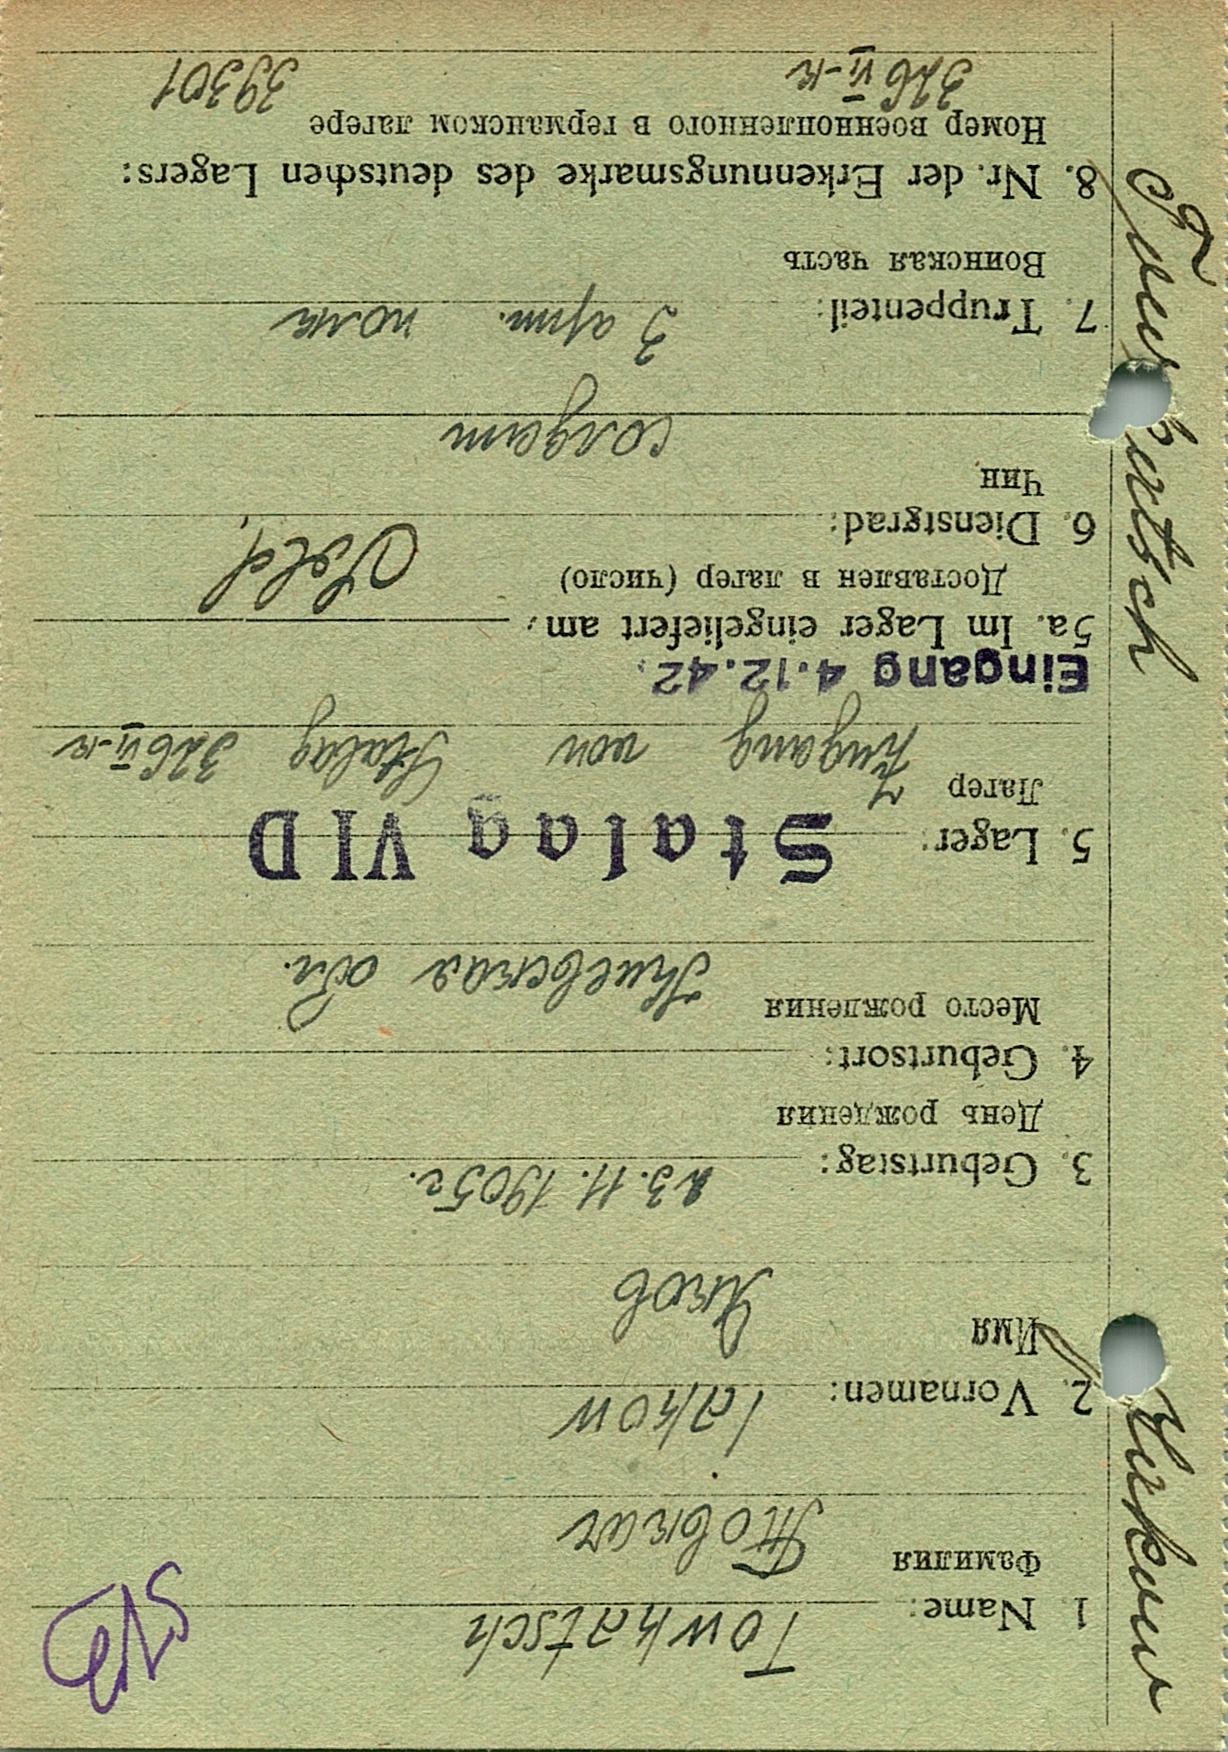 1. Name: Towkatsch
Фамилия Товкач
2. Vornamen: Iakow
Имя Яков
3. Geburtstag: 23.11.1905г.
День рождения
4. Geburtsort:
Место рождения Киевская обл.
5. Lager: Stalag VI D
Лагер Zugang von Stalag 326 VI-K
Eingang 4.12.42.
5a. Im Lager eingeliefert am:
Доставлен в лагер (число)
6. Dienstgrad: Sold.
Чин солдат
7. Truppenteil: 3 арт. полк
Воинская часть
8. Nr. der Erkennungsmarke des deutschen Lagers:
Номер военнопленного в германском лагере
326 VI-K 39301